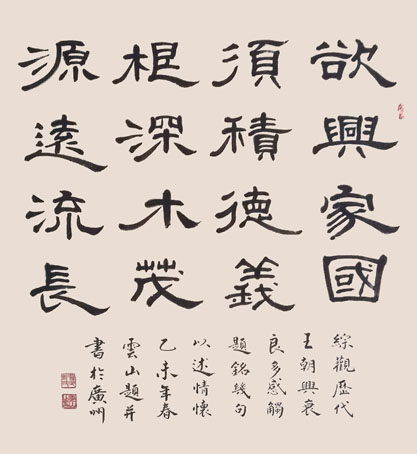 欲興家國
須積德義
根深木茂
源遠流長
綜觀歷代
王朝興衰
良多感觸
題銘幾句
以述情懷
乙未年春
雲山題并
書於廣州